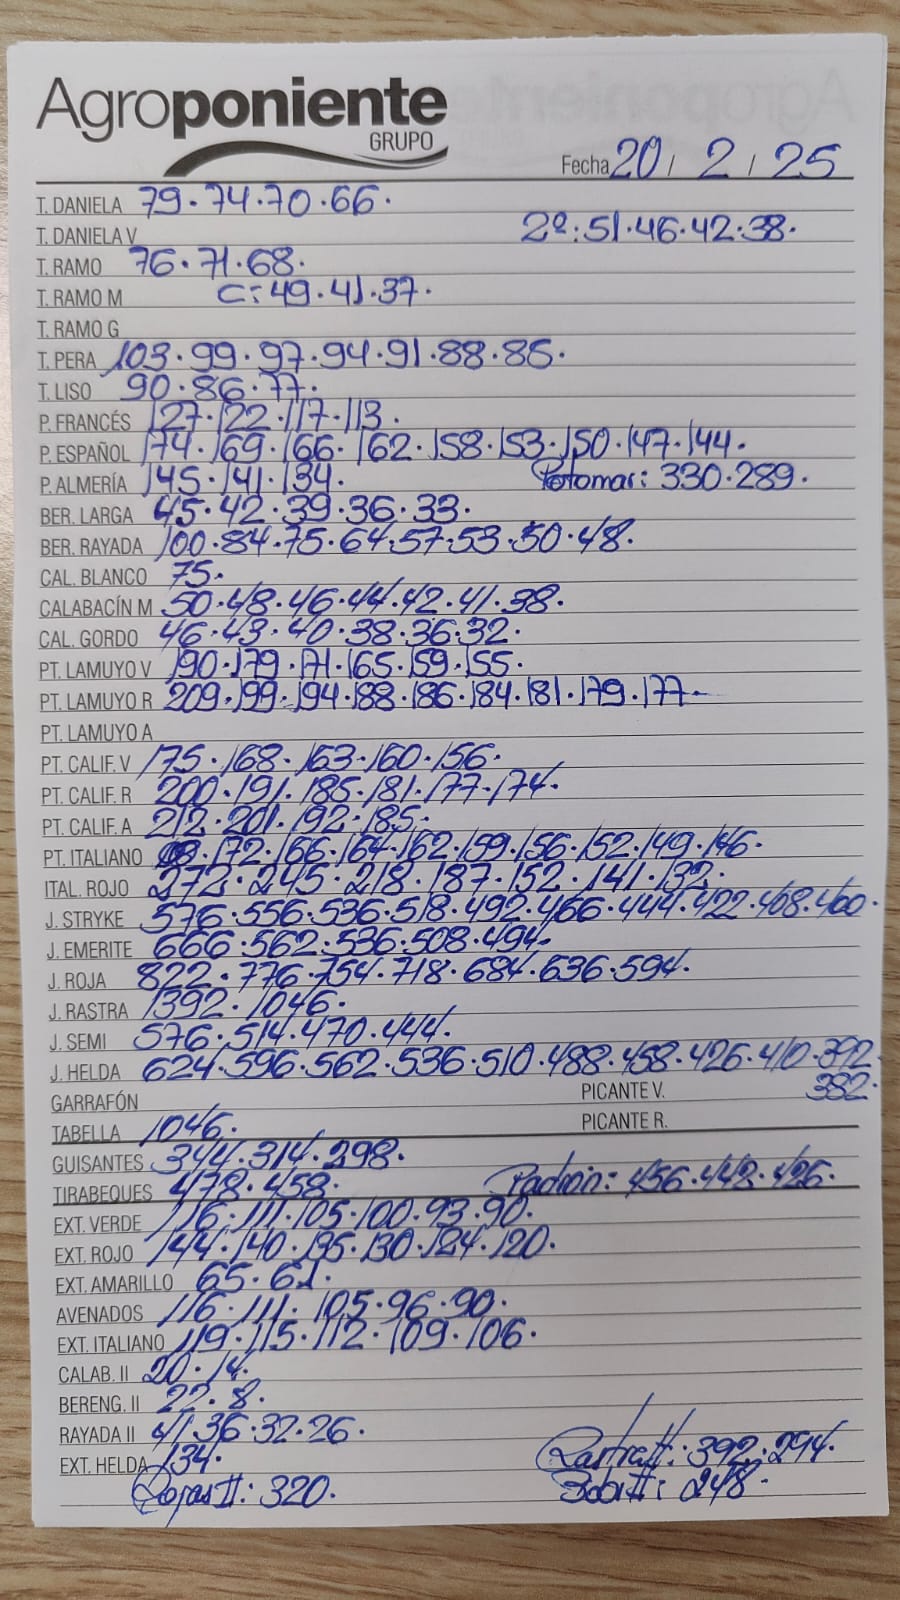 Agroponiente
GRUPO
Fecha 20 / 2 / 25
T. DANIELA 79.74.70.66.
T. DANIELA V 2º:51.46.42.38.
T. RAMO 76.71.68.
T. RAMO M C:49.41.37.
T. RAMO G
T. PERA 103.99.97.94.91.88.85.
T. LISO 90.86.77.
P. FRANCÉS 127.122.117.113.
P. ESPAÑOL 174.169.166.162.158.153.150.147.144.
P. ALMERÍA 145.141.134. Potomar: 330.289.
BER. LARGA 45.42.39.36.33.
BER. RAYADA 100.84.75.64.57.53.50.48.
CAL. BLANCO 75.
CALABACÍN M 50.48.46.44.42.41.38.
CAL. GORDO 46.43.40.38.36.32.
PT. LAMUYO V 190.179.171.165.159.155.
PT. LAMUYO R 209.199.194.188.186.184.181.179.177.
PT. LAMUYO A
PT. CALIF. V 175.168.163.160.156.
PT. CALIF. R 200.191.185.181.177.174.
PT. CALIF. A 212.201.192.185.
PT. ITALIANO 172.166.164.162.159.156.152.149.146.
ITAL. ROJO 272.245.218.187.152.141.132.
J. STRYKE 576.556.536.518.492.466.444.422.408.400.
J. EMERITE 666.562.536.508.494.
J. ROJA 822.776.754.718.684.636.594.
J. RASTRA 1392.1046.
J. SEMI 576.514.470.444.
J. HELDA 624.596.562.536.510.488.458.426.410.392
GARRAFÓN PICANTE V. 382.
TABELLA 1046. PICANTE R.
GUISANTES 344.314.298.
TIRABEQUES 478.458. Padrón: 456.442.426.
EXT. VERDE 116.111.105.100.93.90.
EXT. ROJO 144.140.135.130.124.120.
EXT. AMARILLO 65.61.
AVENADOS 116.111.105.96.90.
EXT. ITALIANO 119.115.112.109.106.
CALAB. II 20.14.
BERENG. II 22.8.
RAYADA II 41.36.32.26.
EXT. HELDA 134. Rastra II: 392.294.
Rojas II: 320. Bobi II: 248.